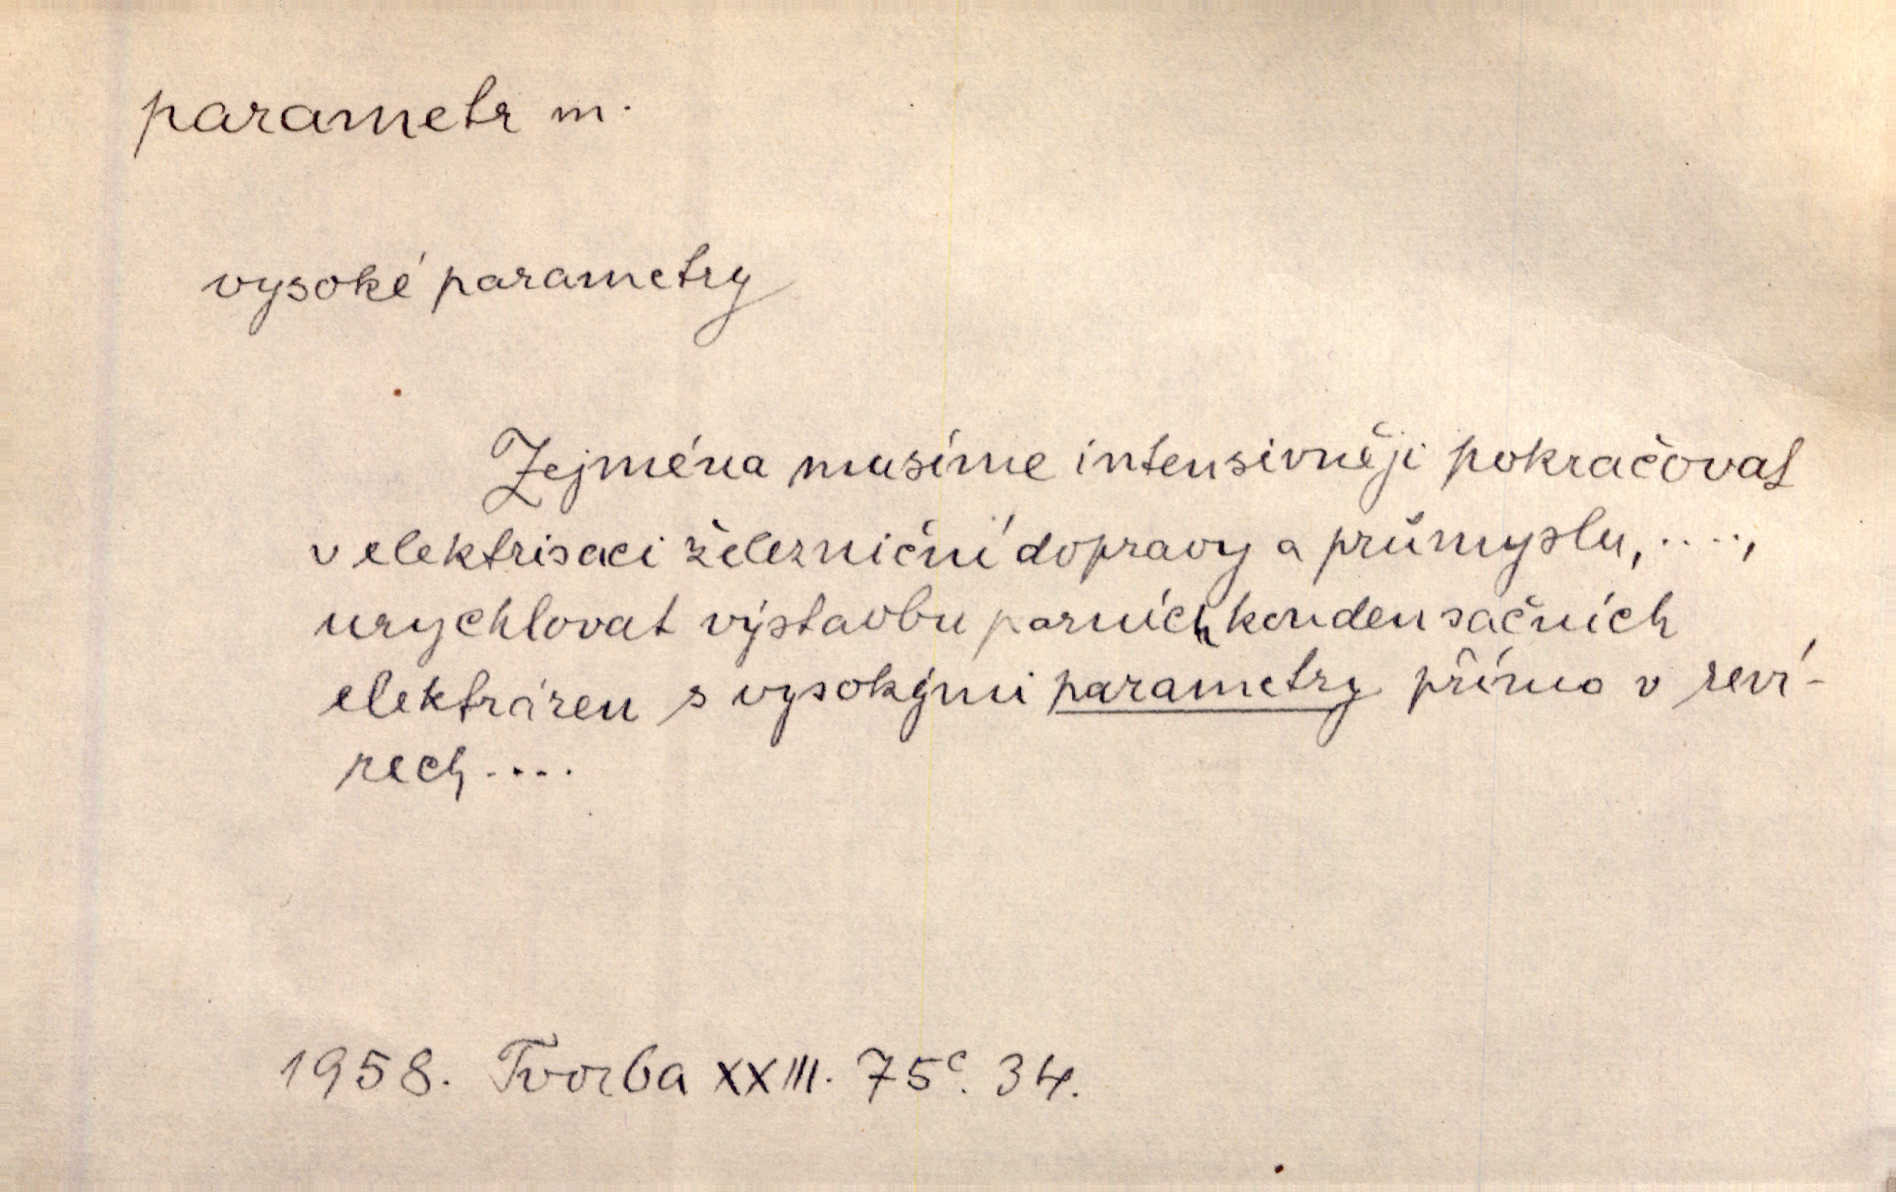 parametr m.
vysoké parametry
Zejména musíme intensivněji pokračovat
v elektrisaci železniční dopravy a průmyslu, ....,
urychlovat výstavbu parních kondensačních
elektráren s vysokými parametry přímo v reví-
rech....
1958. Tvorba XXIII. 75c. 34.